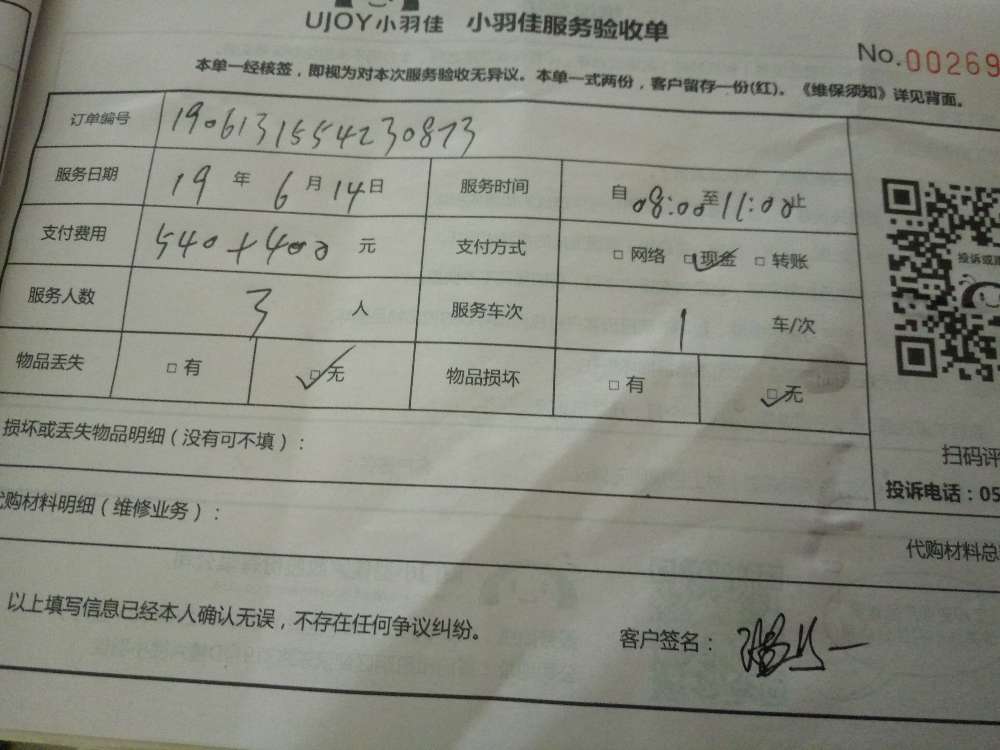 UJOY小羽佳 小羽佳服务验收单
No.00269
本单一经核签，即视为对本次服务验收无异议。本单一式两份，客户留存一份(红)。《维保须知》详见背面。
订单编号 1906131554230873
服务日期 19 年 6 月 14 日 服务时间 自 08:00 至 11:00 止
支付费用 540+400 元 支付方式 □ 网络 □ 现金 □ 转账
服务人数 3 人 服务车次 1 车/次
物品丢失 □ 有 □ 无 物品损坏 □ 有 □ 无
损坏或丢失物品明细（没有可不填）：
扫码评
投诉电话：05
购材料明细（维修业务）：
代购材料总
以上填写信息已经本人确认无误，不存在任何争议纠纷。 客户签名：